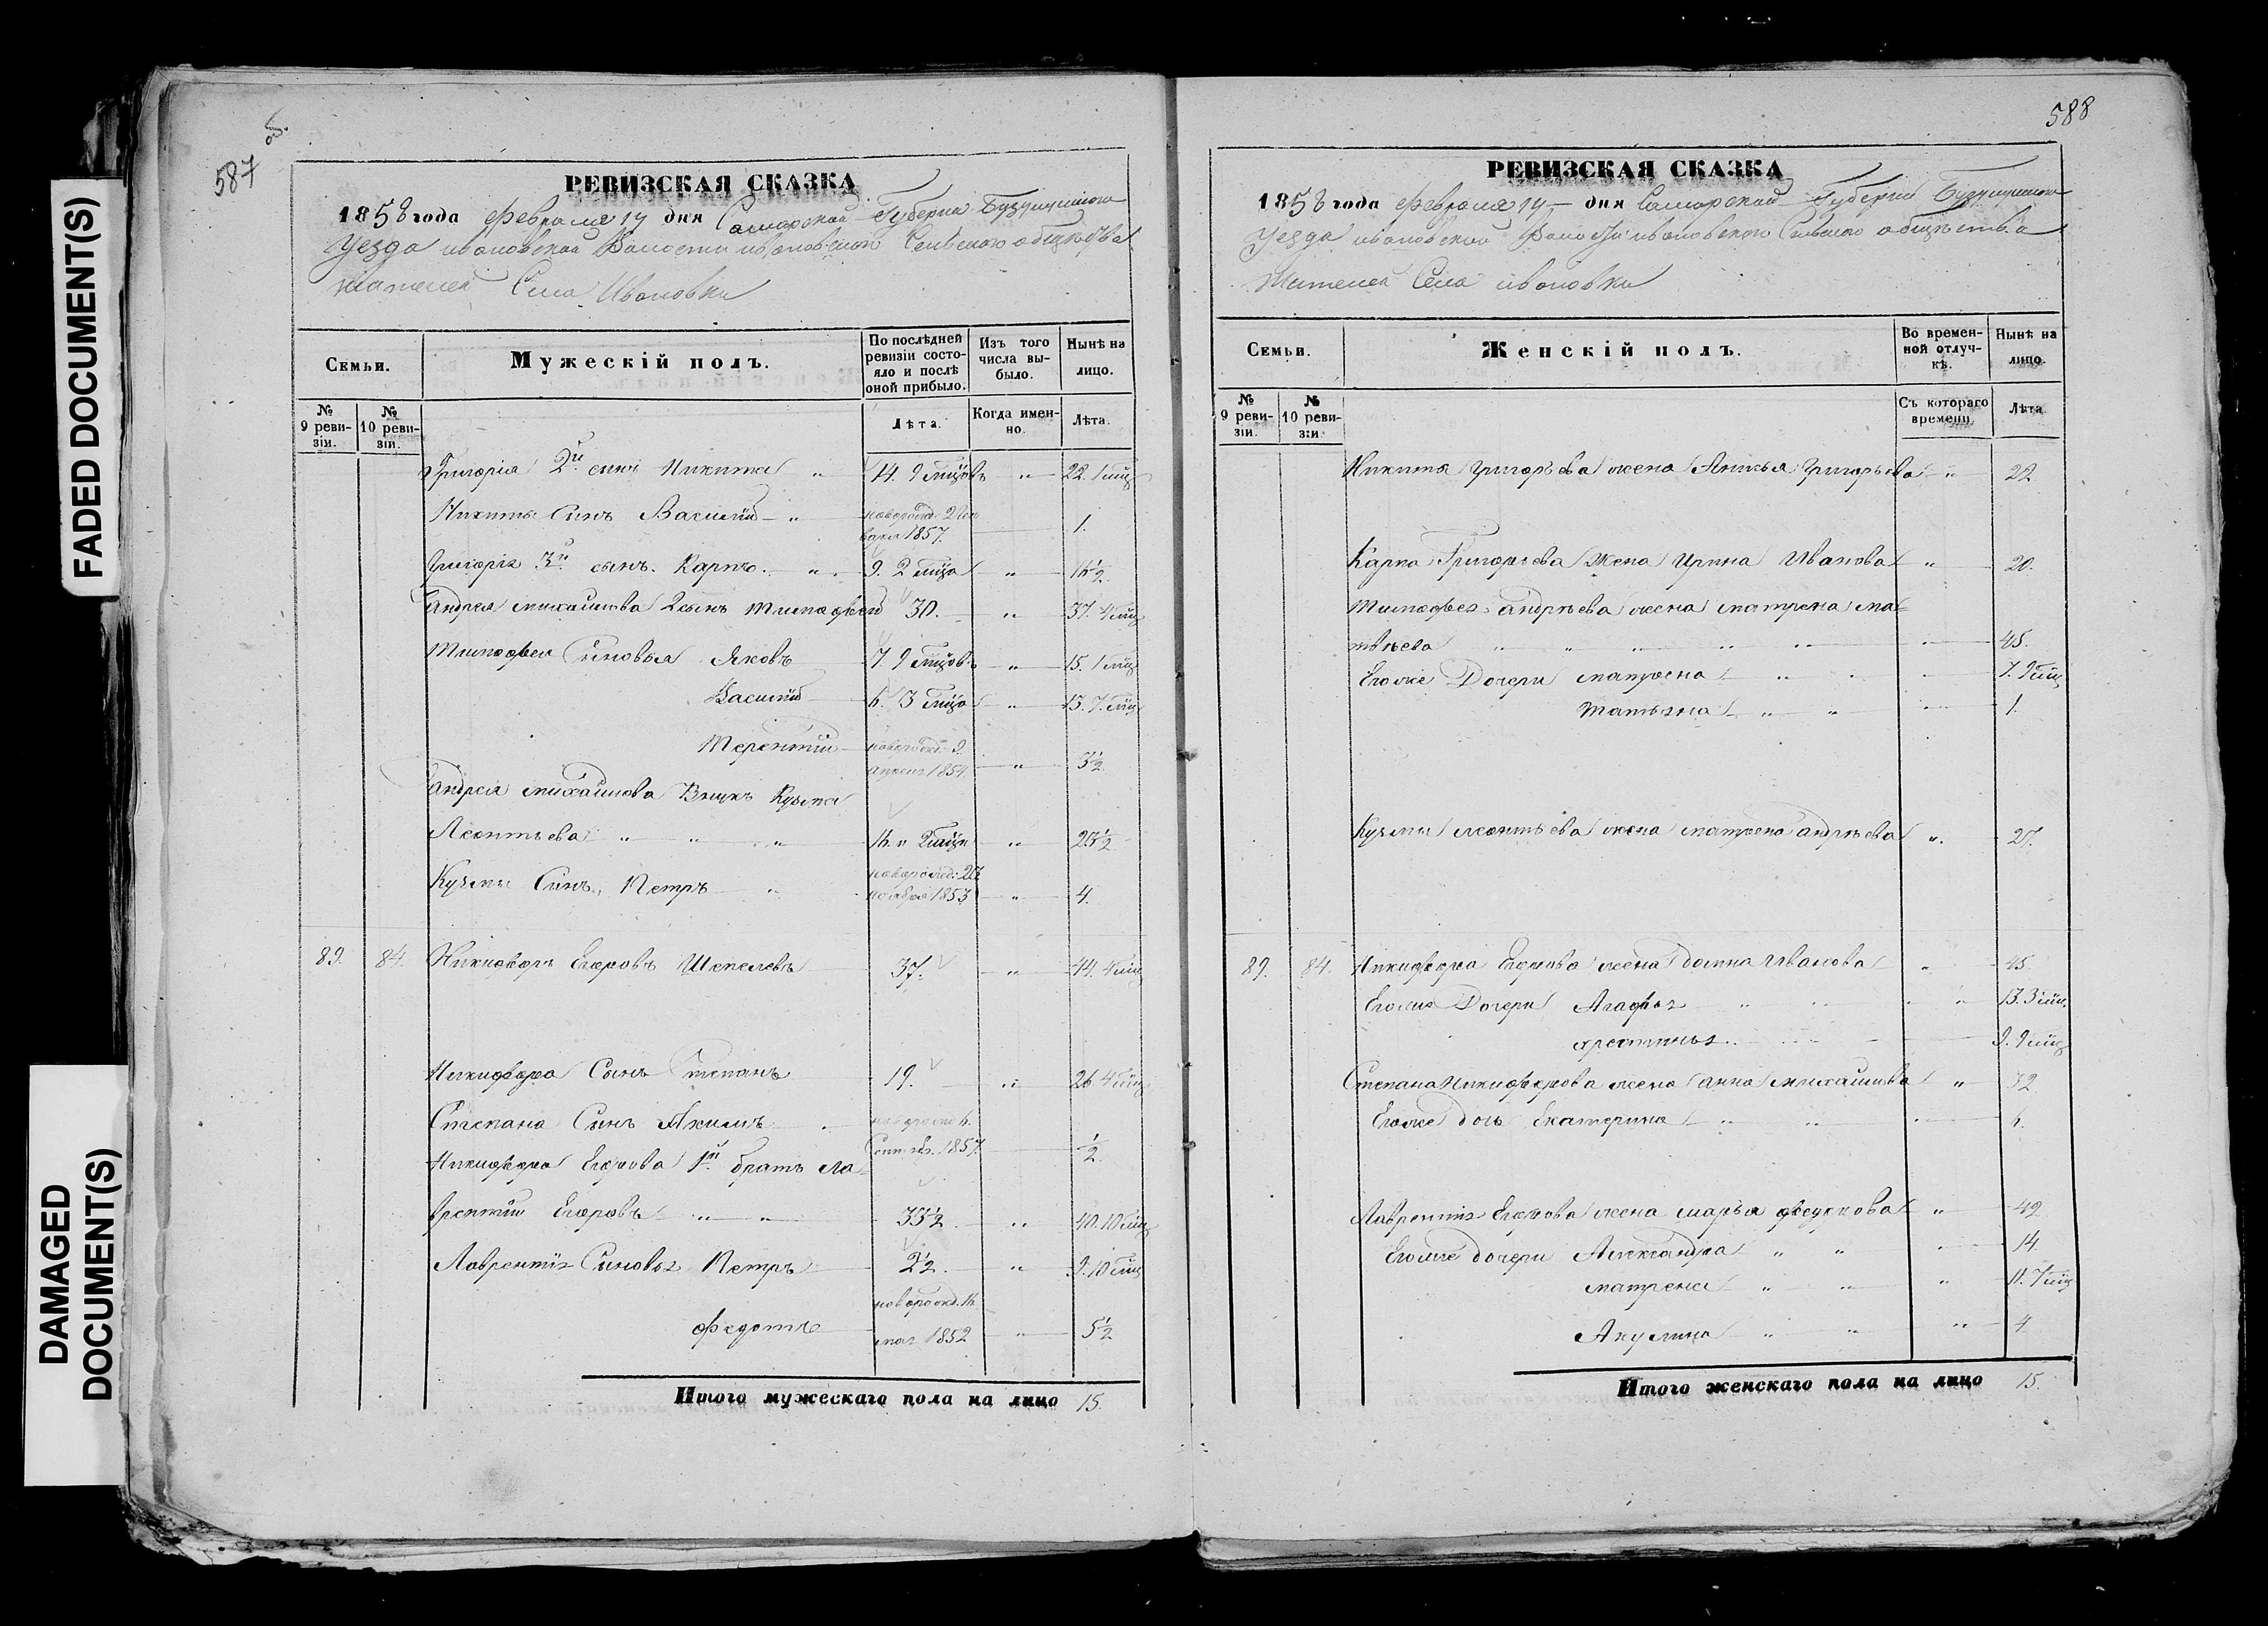 FADED DOCUMENT(S)
DAMAGED
DOCUMENT(S)
об.
587
РЕВИЗСКАЯ СКАЗКА
1858 года Февраля 14 дня Самарской Губернии Бузулукского
Уезда ивановской Волости ивановского Сельского общества
жителей Села Ивановки
Семьи.
Мужескій полъ.
По послѣдней ревизіи состояло и послѣ оной прибыло.
Изъ того числа выбыло.
Нынѣ на лицо.
№ 9 ревизіи.
№ 10 ревизіи.
Лѣта.
Когда именно.
Лѣта.
Григорія 2й сынъ Никита " 14. 9 мцовъ " 22. 1 мц
Никиты Сынъ Василий " новорожд. 2 Ян
варя 1857. 1.
Григорія 3й сынъ Карпъ " 9. 2 мца " 16½
Андрея михайлова 2 сынъ Тимофей 30. " 37. 4 мц
Тимофея Сыновья Яковъ 7. 9 мцовъ " 15. 1 мц
Василий 6. 3 мца " 13. 7. мц
Терентий новорожд. 9
апреля 1854. " 3½
Андрея михайлова Внукъ Кузма
Леонтьева " " " 16. и 2 мца "
Кузмы Сынъ Петръ " новорожд.
ноября 1853 " 4.
89. 84. Никифоръ Егоровъ Шепелевъ 37. " 44. 4 мц
Никифора Сынъ Степанъ 19. " 26 4 мц
Степана Сынъ Якимъ новорожд 6.
Сентяб. 1857 ½
Никифора Егорова 1й братъ Ла
врентий Егоровъ " " 33½ " 40. 10 мц
Лаврентія Сыновья Петръ 2½ " 9. 10 мц
Федотъ новорожд. 16
мая 1852 " 5½
Итого мужескаго пола на лицо 15.
588
РЕВИЗСКАЯ СКАЗКА
1858 года Февраля 14 дня Самарской Губернии Бузулукского
Уезда ивановской Волости ивановского Сельского общества
Жителей Села ивановки
Семьи.
Женскій полъ.
Во временной отлучкѣ.
Нынѣ на лицо.
№ 9 ревизіи.
№ 10 ревизіи.
Съ котораго времени.
Лѣта.
Никиты Григорьева жена Анисья Григорьева " 22
Карпа Григорьева Жена Ирина Иванова " 20.
Тимофея андрѣева жена матрена ма=
твѣева " " " " " 45.
Егоже Дочери матрена " 7. 9 мц
Татьяна " " " 1.
Кузмы леонтьева жена матрена андрѣева ". 27.
89. 84. Никифора Егорова жена домна Иванова " 45.
Егоже Дочери Агафья " " 13. 3 мц.
хрестинья 9. 9 мц
Степана Никифорова жена анна михайлова " 32
Егоже дочь Екатерина " " 6.
Лаврентія Егорова жена марья Федорова " 42
Егоже дочери Александра " " " 14.
матрена " " " 11. 7 мц
Акулина " " " 4
Итого женскаго пола на лицо 15.